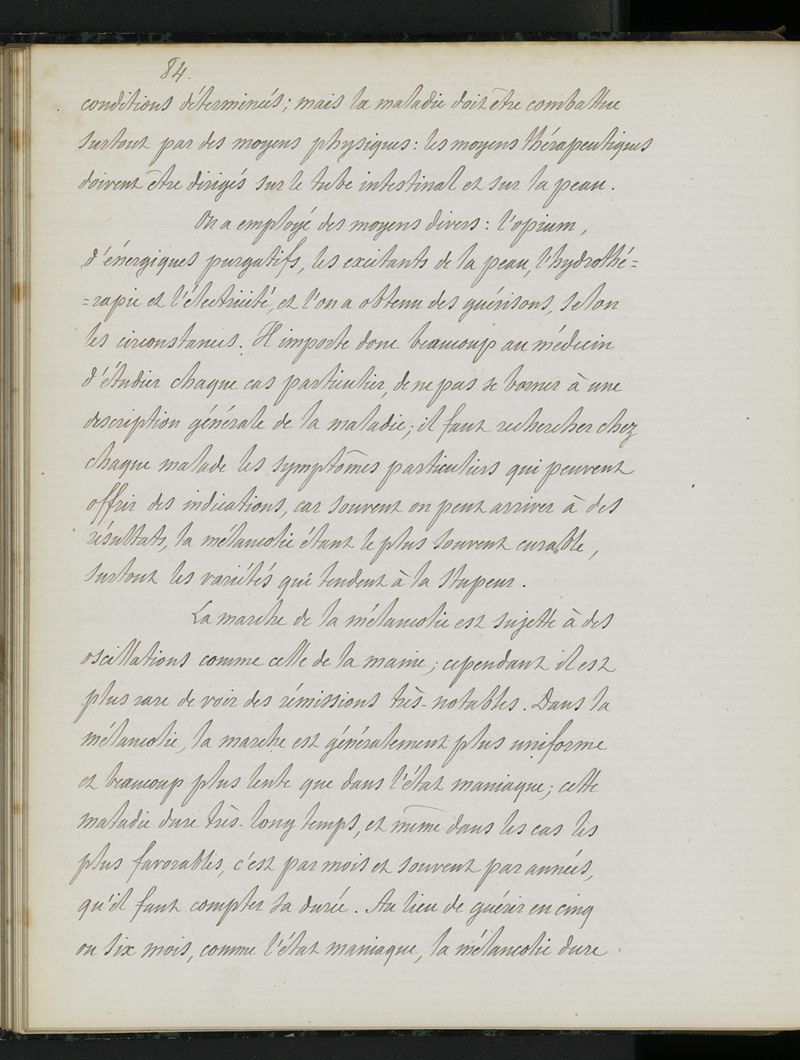 84.
conditions déterminées; mais la maladie doit être combattue
surtout par des moyens physiques: les moyens thérapeutiques
doivent être dirigés sur le tube intestinal et sur la peau.
On a employé des moyens divers: l'opium,
d'énergiques purgatifs, les excitants de la peau, l'hydrothé=
=rapie et l'électricité, et l'on a obtenu des guérisons, selon
les circonstances. Il importe donc beaucoup au médecin
d'étudier chaque cas particulier, de ne pas se borner à une
description générale de la maladie; il faut rechercher chez
chaque malade les symptômes particuliers qui peuvent
offrir des indications, car souvent on peut arriver à des
résultats, la mélancolie étant le plus souvent curable,
surtout les variétés qui tendent à la stupeur.
La marche de la mélancolie est sujette à des
oscillations comme celle de la manie; cependant il est
plus rare de voir des rémissions très-notables. Dans la
mélancolie, la marche est généralement plus uniforme
et beaucoup plus lente que dans l'état maniaque; cette
maladie dure très-longtemps, et même dans les cas les
plus favorables, c'est par mois et souvent par années,
qu'il faut compter sa durée. Au lieu de guérir en cinq
ou six mois, comme l'état maniaque, la mélancolie dure